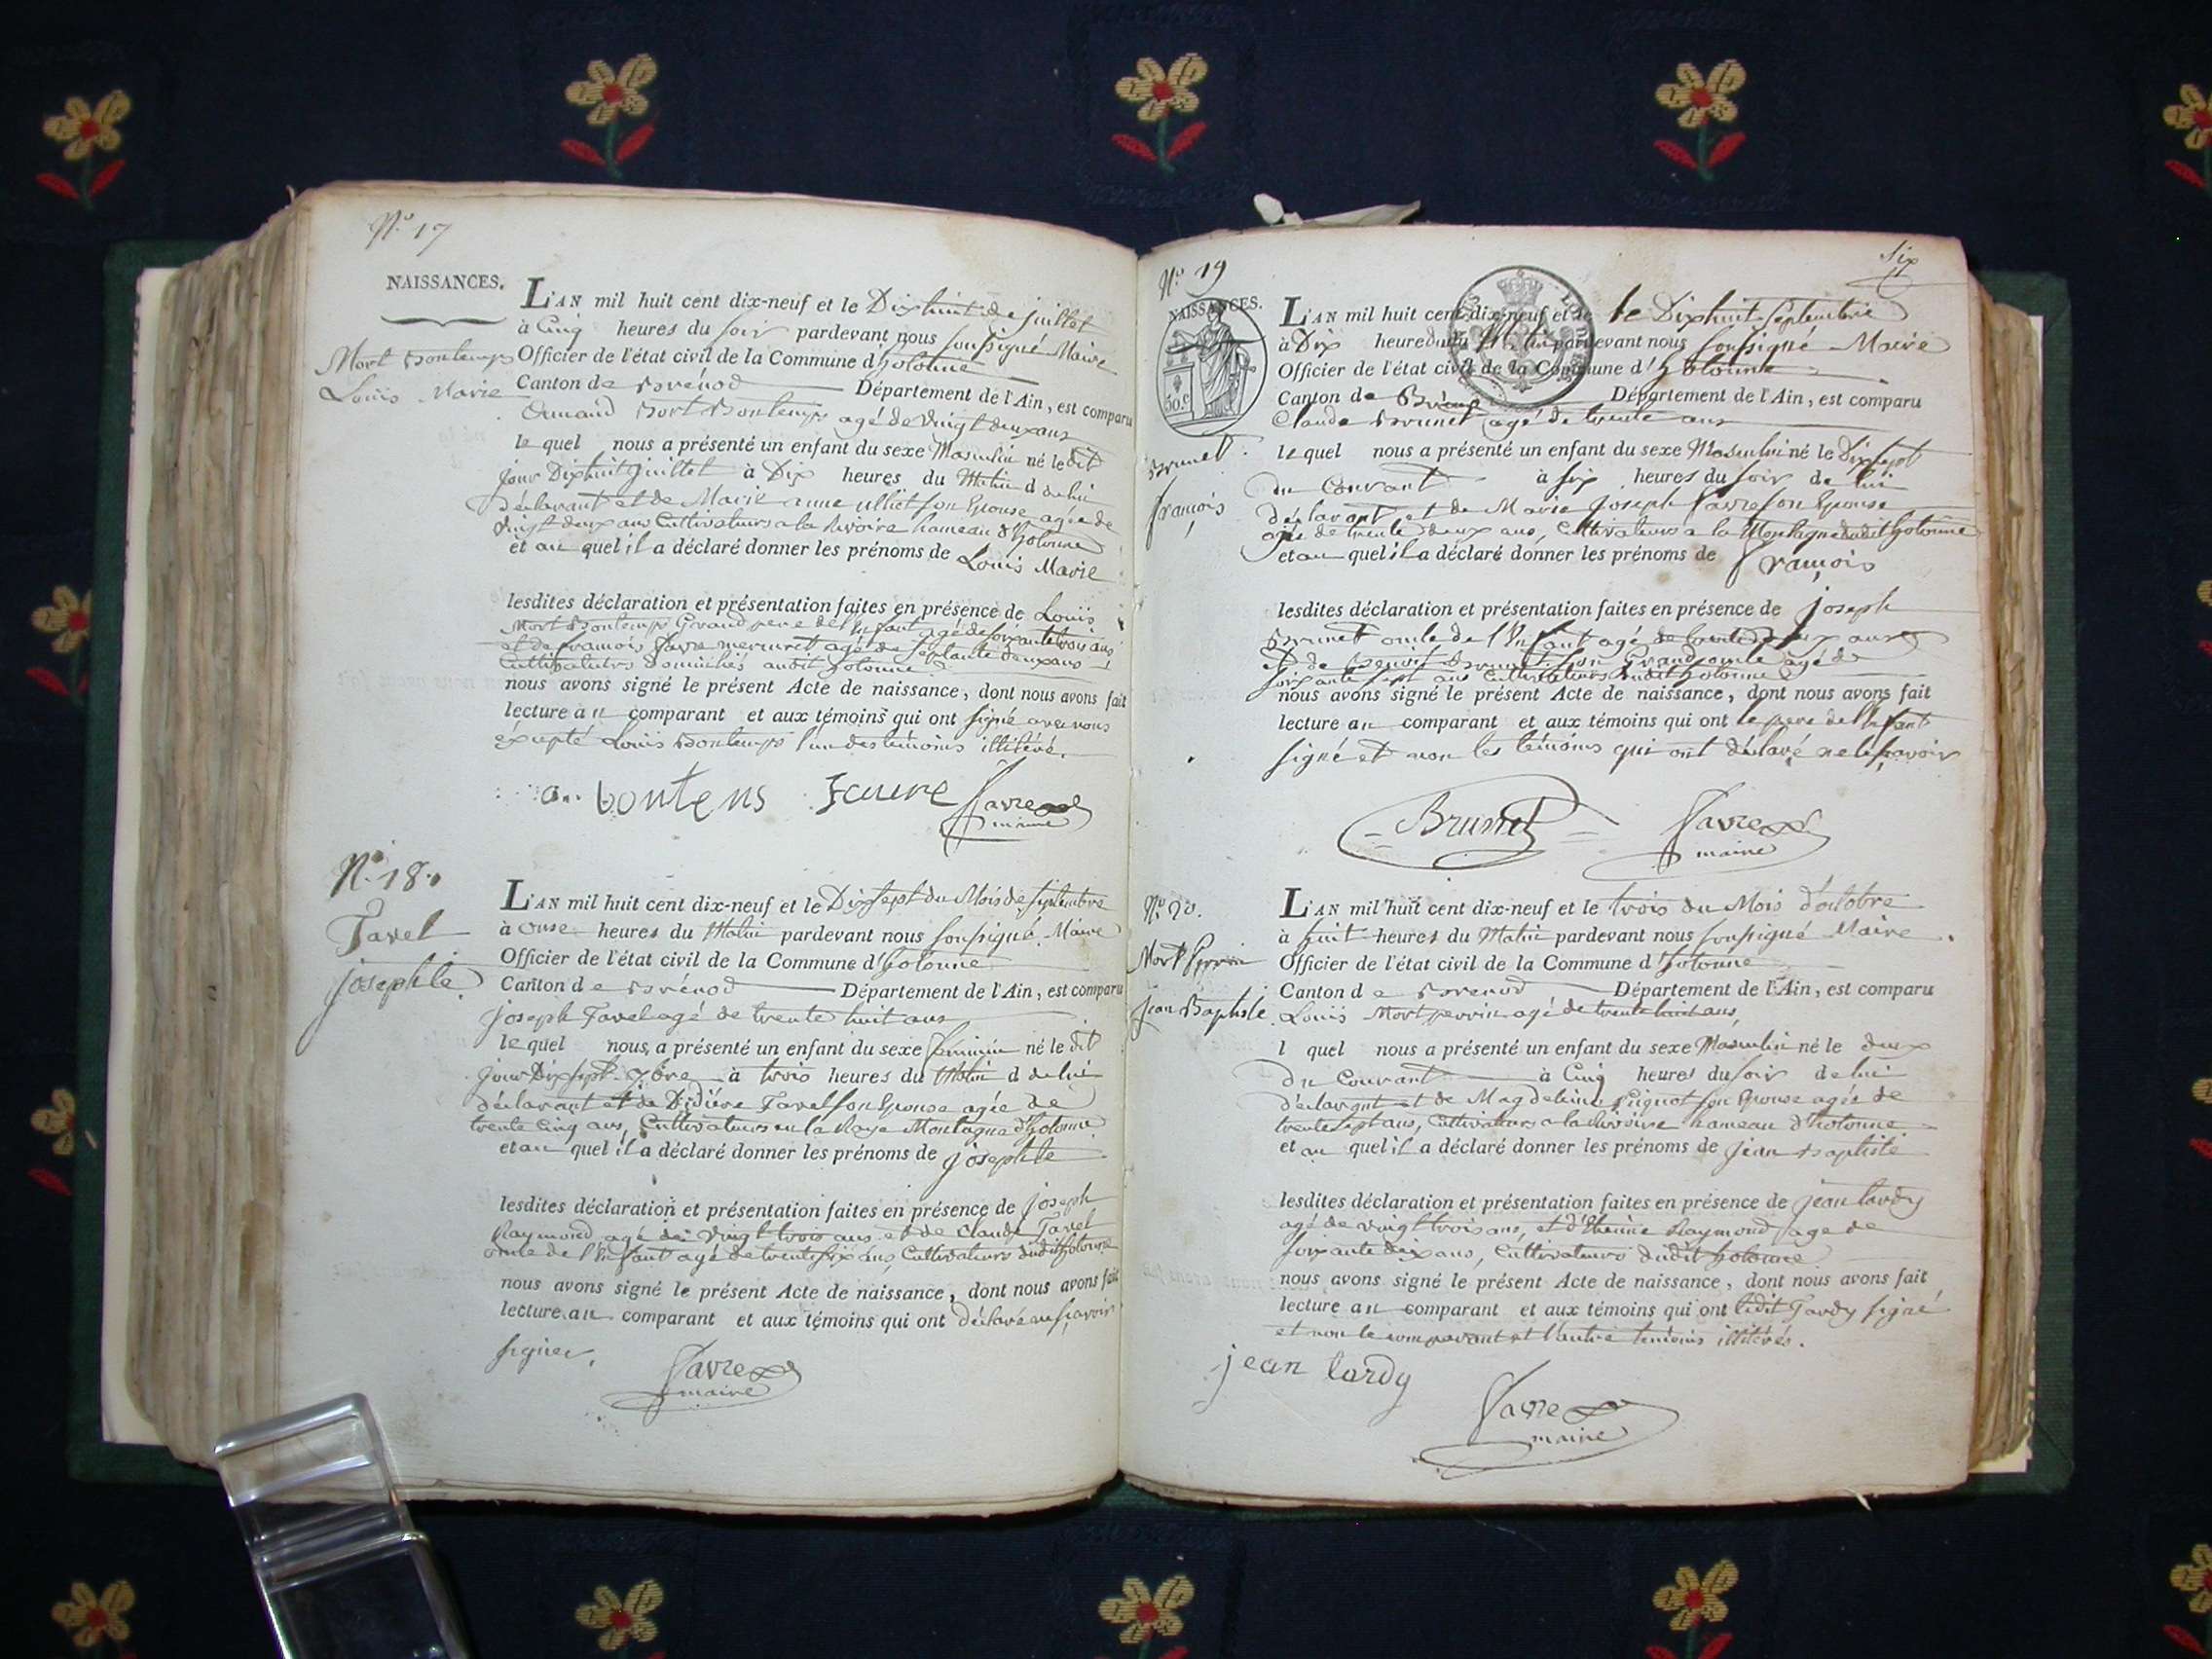 N.o 17
NAISSANCES.
Mort Bontemps
Louis Marie
L'AN mil huit cent dix-neuf et le Dixhuit de juillet
à Cinq heures du soir pardevant nous soussigné Maire
Officier de l'état civil de la Commune d'hotonne
Canton de Brénod Département de l'Ain, est comparu
Armand Mort Bontemps agé de vingt deux ans
le quel nous a présenté un enfant du sexe Masculin né le dit
jour Dixhuit juillet à Dix heures du Matin d de lui
déclarant et de Marie anne son Epouse agée de
vingt deux ans Cultivateurs a la Rivoire hameau d'hotonne
et au quel il a déclaré donner les prénoms de Louis Marie
lesdites déclaration et présentation faites en présence de Louis
Mort Bontemps Grand pere de l'Enfant agé de soixante trois ans
et de françois favre mercuret agé de septante deux ans
Cultivateurs domiciliés audit hotonne
nous avons signé le présent Acte de naissance, dont nous avons fait
lecture au comparant et aux témoins qui ont signé avec nous
éxcepté Louis Bontemps l'un des témoins illitéré.
a. bontens faure favre
maire
N.o 18.
Tavel
josephte
L'AN mil huit cent dix-neuf et le Dixsept du Mois de septembre
à onse heures du Matin pardevant nous soussigné Maire
Officier de l'état civil de la Commune d'hotonne
Canton de Brénod Département de l'Ain, est comparu
joseph Tavel agé de trente huit ans
le quel nous a présenté un enfant du sexe féminin né le dit
jour Dixsept 7bre à trois heures du Matin d de lui
déclarant et de Didiére Tavel son Epouse agée de
trente Cinq ans, Cultivateurs en la Raye Montagne d'hotonne
et au quel il a déclaré donner les prénoms de josephte
lesdites déclaration et présentation faites en présence de joseph
Raymond agé de vingt trois ans et de Claude Tavel
oncle de l'Enfant agé de trente six ans, Cultivateurs dudit hotonne
nous avons signé le présent Acte de naissance, dont nous avons fait
lecture au comparant et aux témoins qui ont déclaré ne sçavoir
signer.
favre
maire
six
N.o 19
NAISSANCES.
50.c
Brunet
françois
L'AN mil huit cent dix-neuf et le le Dixhuit septembre
à Dix heures du Matin pardevant nous soussigné Maire
Officier de l'état civil de la Commune d'hotonne
Canton de Brénod Département de l'Ain, est comparu
Claude Brunet agé de trente ans
le quel nous a présenté un enfant du sexe Masculin né le Dixsept
du Courant à six heures du soir de lui
déclarant et de Marie Joseph favre son Epouse
agée de trente deux ans, Cultivateurs a la Montagne dudit hotonne
et au quel il a déclaré donner les prénoms de françois
lesdites déclaration et présentation faites en présence de joseph
Brunet oncle de l'Enfant agé de trente deux ans
et de benoit Brunet son Grand oncle agé de
soixante sept ans Cultivateurs dudit hotonne
nous avons signé le présent Acte de naissance, dont nous avons fait
lecture au comparant et aux témoins qui ont le pere de l'Enfant
signé et non les témoins qui ont déclaré ne le sçavoir
Brunet favre
maire
N.o 20.
Mort Perrin
jean Baptiste
L'AN mil huit cent dix-neuf et le trois du Mois d'octobre
à huit heures du Matin pardevant nous soussigné Maire
Officier de l'état civil de la Commune d'hotonne
Canton de Brénod Département de l'Ain, est comparu
Louis Mort perrin agé de trente huit ans,
l quel nous a présenté un enfant du sexe Masculin né le deux
du Courant à Cinq heures du soir de lui
déclarant et de Magdelaine son Epouse agée de
trente sept ans, Cultivateurs a la Rivoire hameau d'hotonne
et au quel il a déclaré donner les prénoms de jean Baptiste
lesdites déclaration et présentation faites en présence de jean tardy
agé de vingt trois ans, et d'Etienne Raymond age de
soixante dix ans, Cultivateurs dudit hotonne
nous avons signé le présent Acte de naissance, dont nous avons fait
lecture au comparant et aux témoins qui ont ledit Tardy signé
et non le comparant et l'autre témoins illitérés.
jean tardy
favre
maire